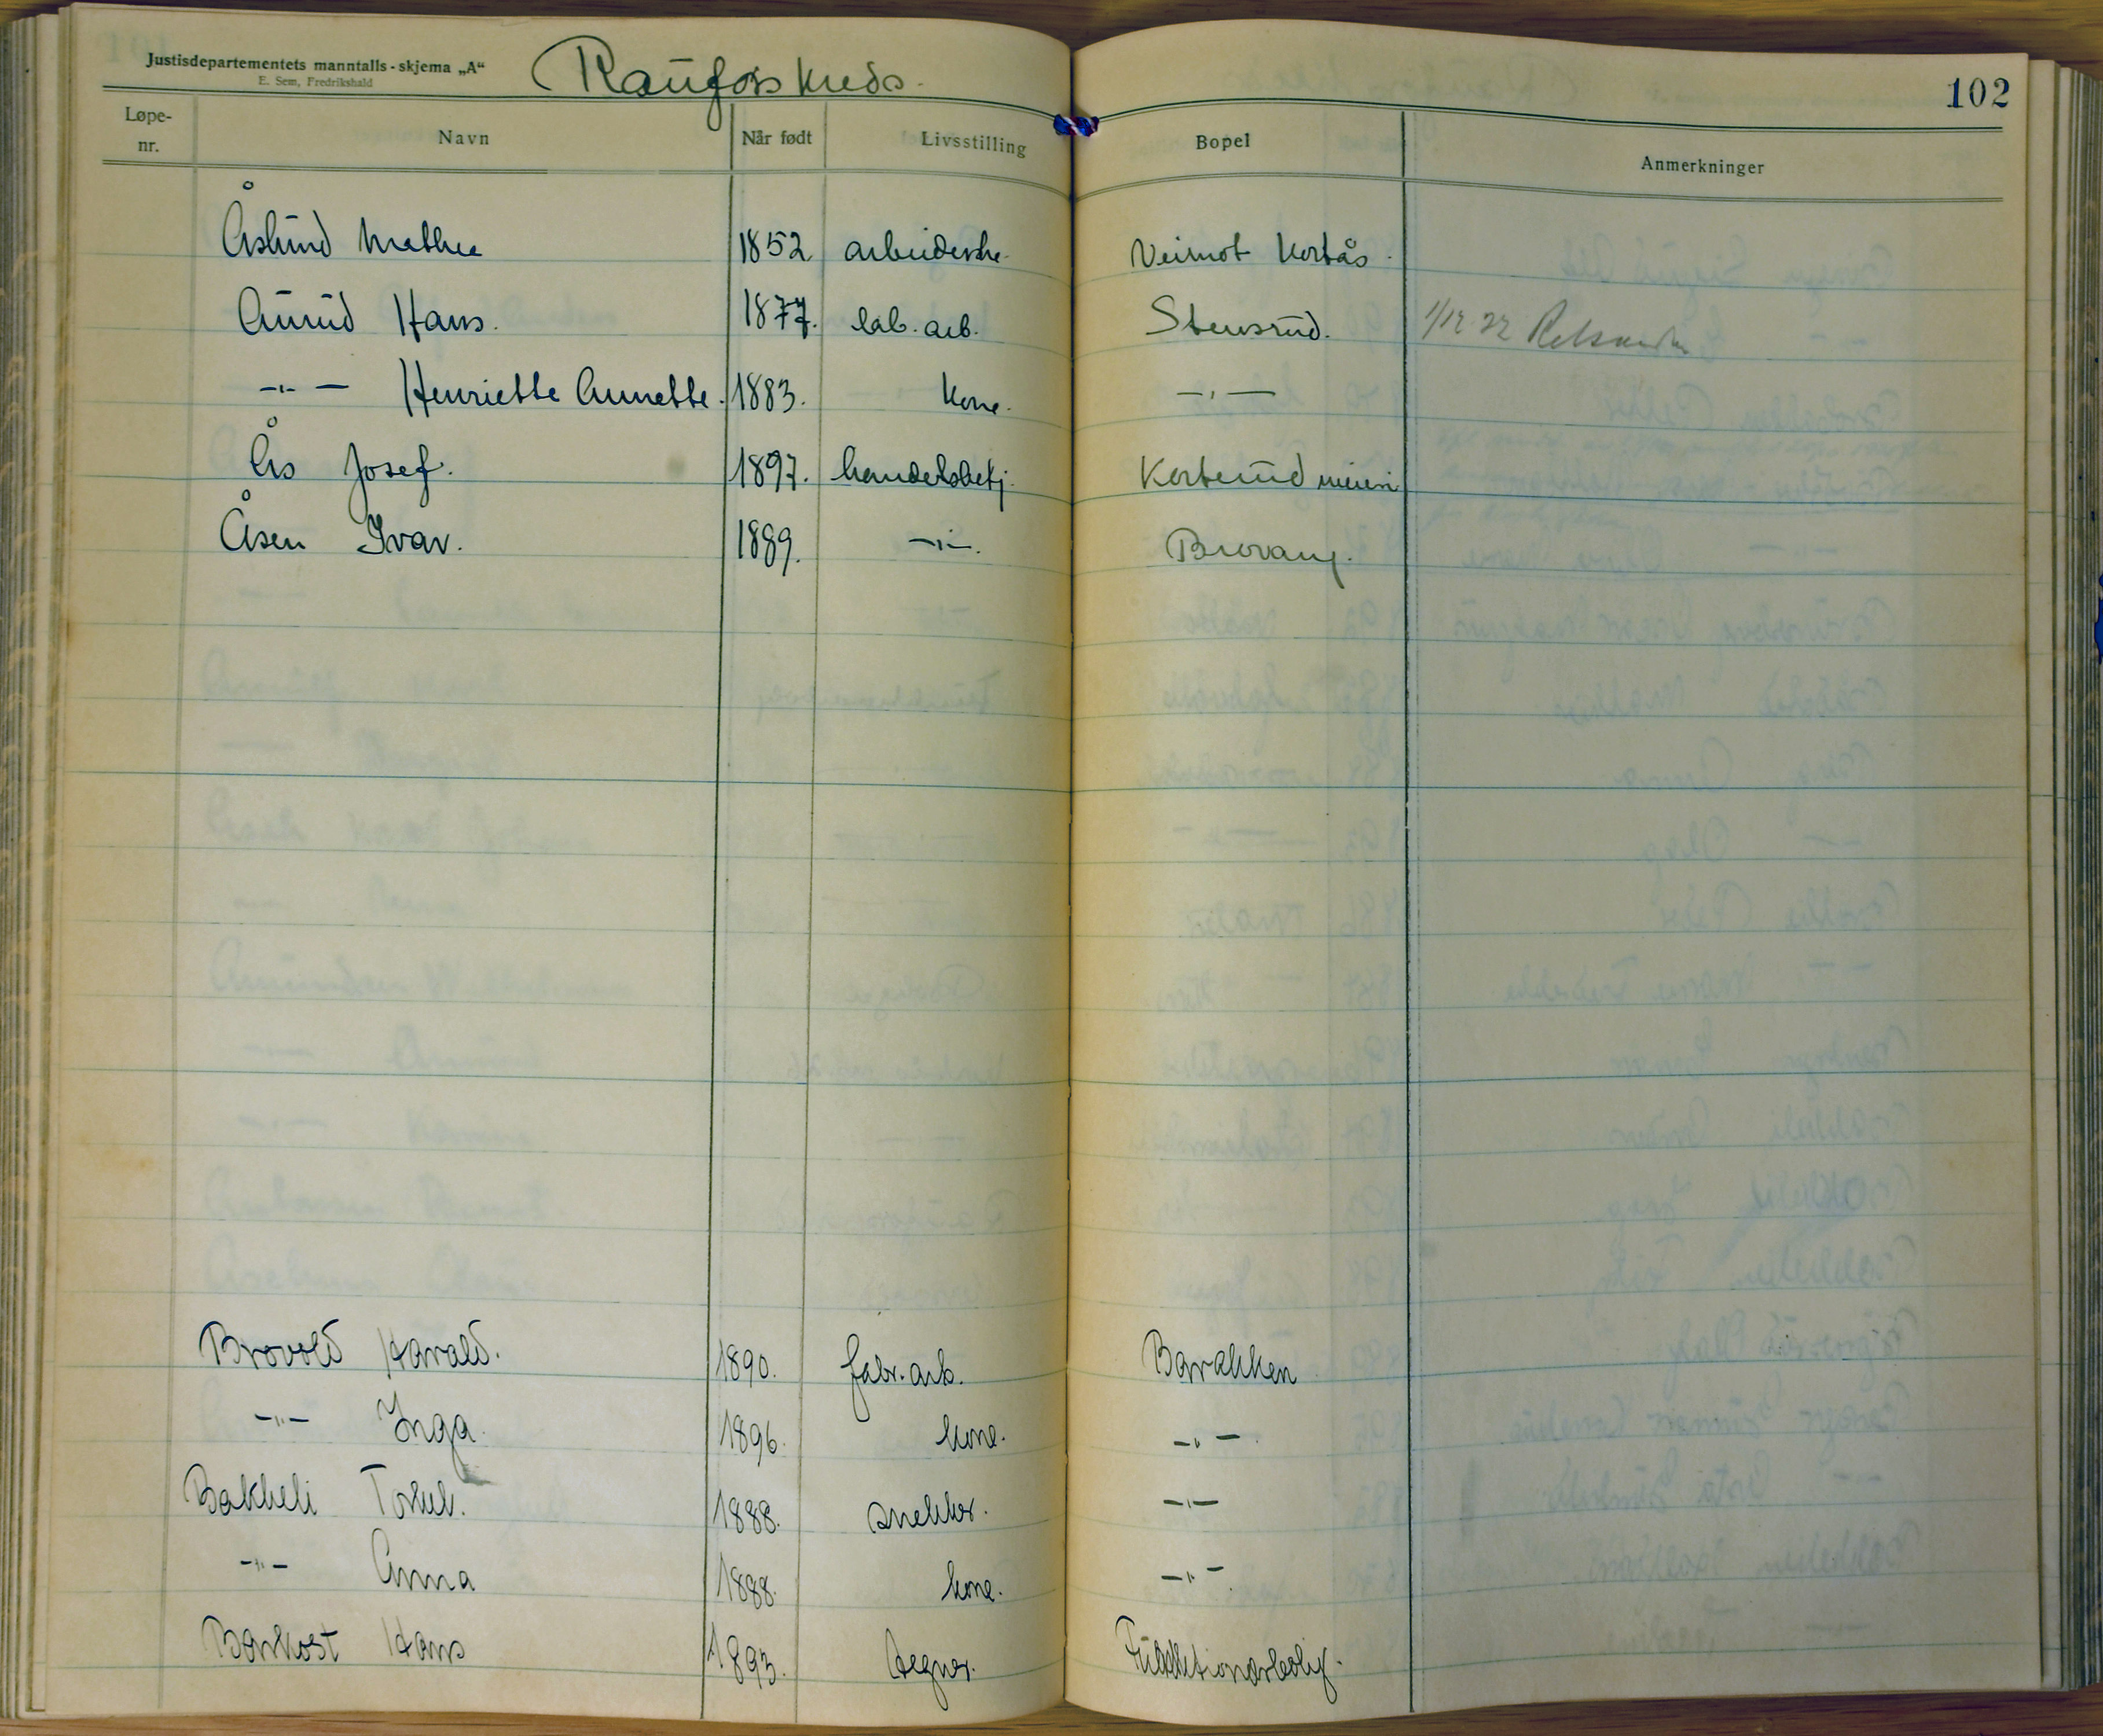 Justisdepartementets manntalls-skjema „A“
E. Sem, Fredrikshald
Raufoss kreds.
102
Løpe-nr. Navn Når født Livsstilling Bopel Anmerkninger
Åslund Mathea 1852 arbeiderske Veimot Kortås.
Aurud Hans. 1877. lab. arb. Stensrud. 1/12 22
-"- Henriette Annette. 1883. Kone. -"-
Ås Josef. 1897. handelsbetj. Korterud meieri
Åsen Ivar. 1889. -"-. Brovang.
Brovold Harald. 1890. fabr. arb. Barakken
-"- Inga. 1896. kone. -"-.
Bakkeli Torleif. 1888. snekker. -"-
-"- Anna 1888. kone. -"-.
Barkost Hans 1893. tegner. Funktionærbolig.